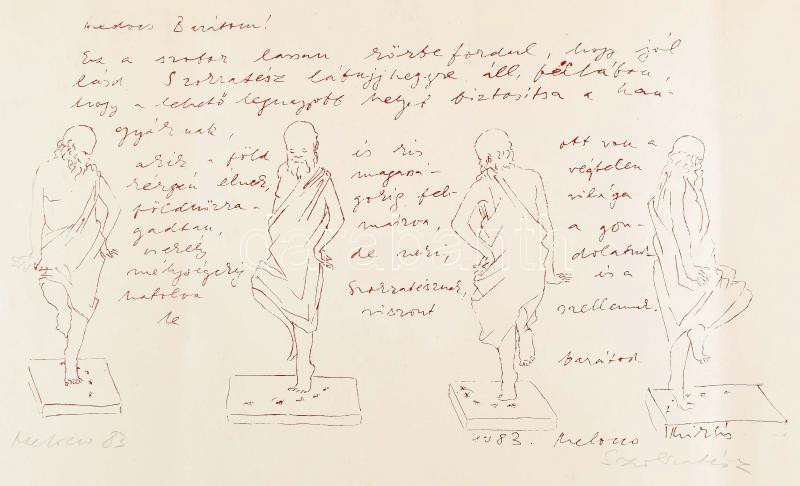 Kedves Barátom!
Ez a szobor lassan körbe fordul, hogy jól
lásd Szokratész lábujjhegyre áll, féllábon,
hogy a lehető legnagyobb helyet biztosítsa a han-
gyáknak,
akik a föld
színén élnek
földhözra-
gadtan,
mélységéig
hatolva
le
és kis
magassá-
gokig fel-
mászva,
de neki,
Szokratésznek,
viszont
ott van a
végtelen
világa
a gon-
dolatnak
és a
szellemnek.
barátod
1983. Melocco Miklós
Melocco 83
Szokratész
darabanth